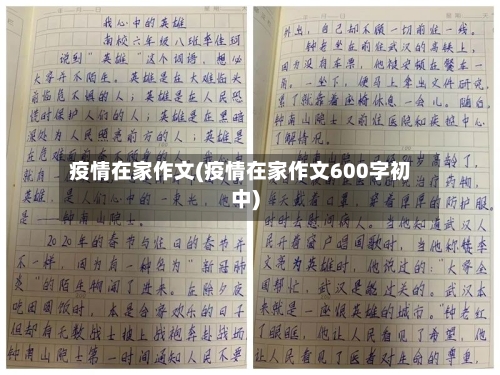 我心中的英雄
南校六年级八班李佳珂
说到“英雄”这个词语，想必
大家并不陌生。英雄是在大难临头
前临危不惧的人；英雄是在人民恐
慌时保护人们的人；英雄是在黑暗
深处为人民照亮前方的人；英雄是
在危难面前
就自
英雄，是人们心中的一束光，他
是——钟南山院士。
2020年的春节与往日的春节并
不一样，因为有一种名为“新冠肺
炎”的陌生物闯了进来。在除夕夜
吃团圆饭时，本是合家欢乐的日子
但却有无数战士披上战袍奔赴战场
钟南山院士第一时间通知人民不要
外出，自己却不顾一切前往一线。
钟老坐在前往武汉的高铁上，
因为没有车票，他被安顿在餐车一
角。一坐下，便马上拿出文件研究，
累了就靠着座椅休息一会儿。随后，
钟南山院士又前往医院和疾控中心
了解情况。
岁高龄了，
治疗药物，
每天戴着口罩，穿着厚厚的防护服，
时时去慰问病人。当他知道武汉人
民开着窗户唱国歌时，当他称赞李
文亮为英雄时，他说过的：“大家全
国帮忙，武汉是能过关的。武汉本
来就是一座很英雄的城市。”钟老红
了眼眶，他让人民看见了希望，他
让人民看见了医者对生命的尊重，
疫情在家作文(疫情在家作文600字初
中)